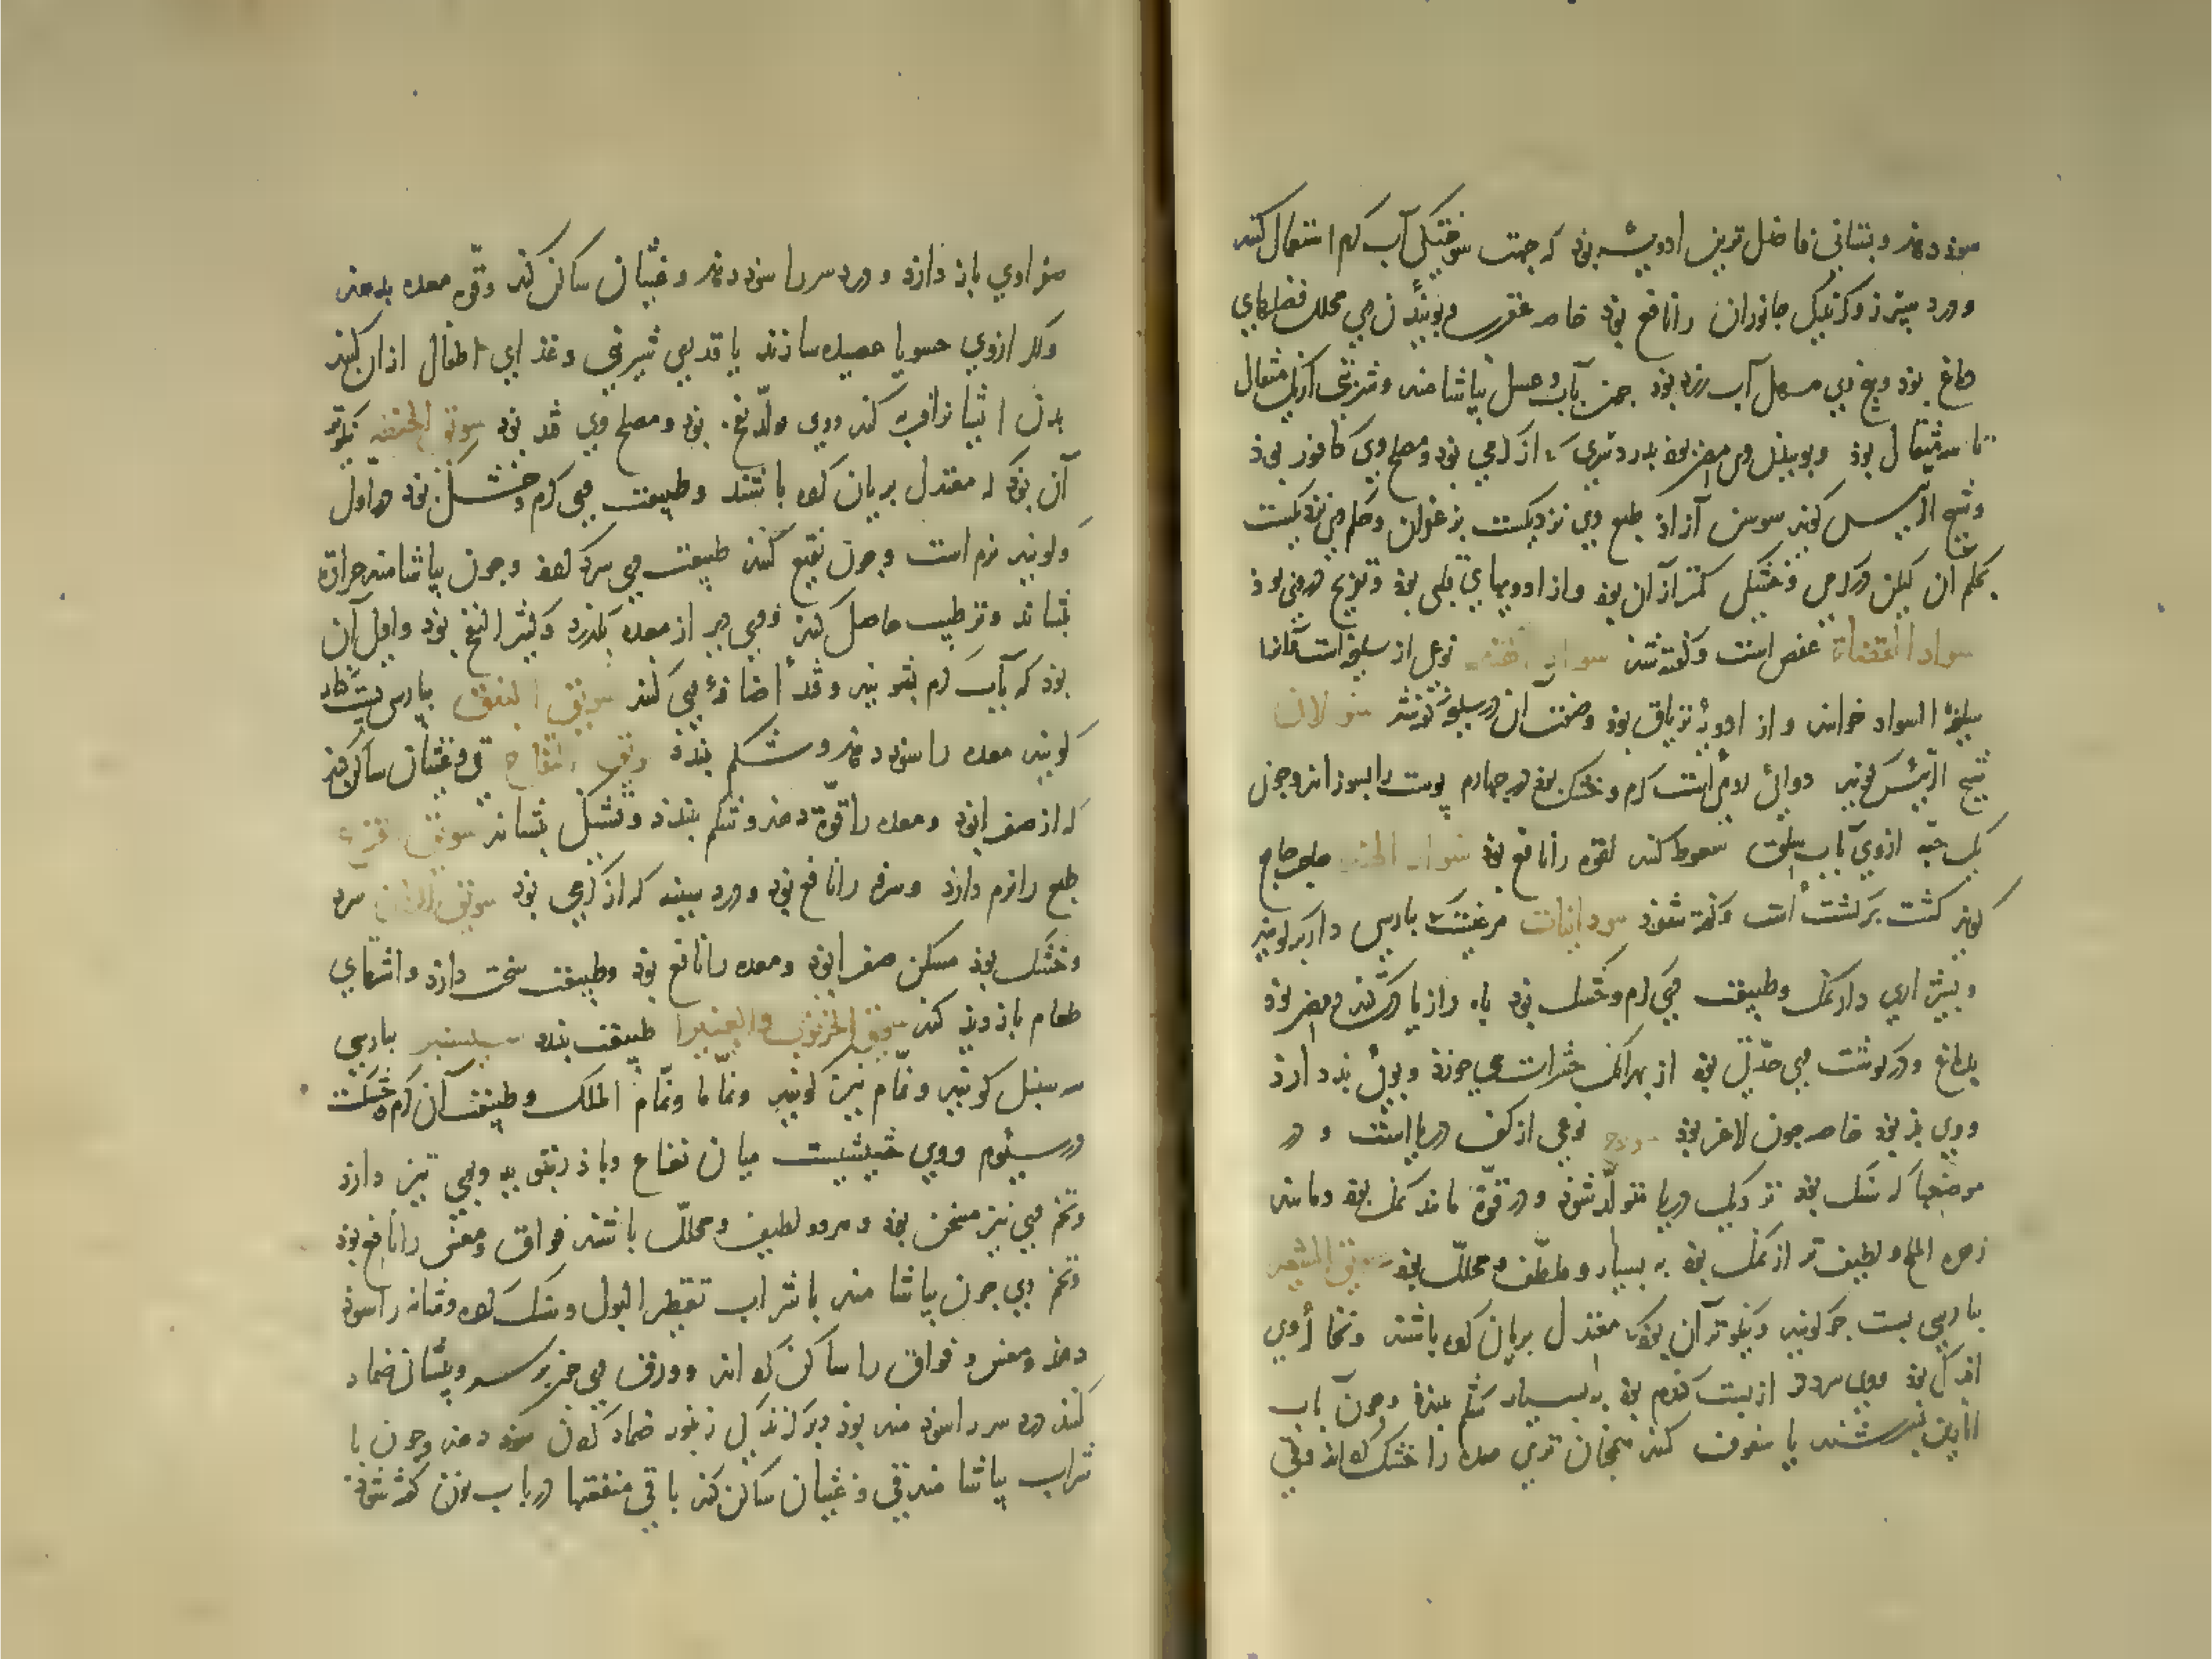 سوذ دهد و بستانی فاضل ترین ادویه بوذ که جهت سوختگی آب گرم استعمال کنند
و درد سپرز و کزندگی جانوران را نافع بوذ خاصه عقرب و بوییدن وی محلل فضلهای
دماغ بوذ و بیخ وی مسهل آب زرد بوذ چون بآب و عسل بیاشامند و شربتی از یک مثقال
تا سه مثقال بوذ و بوییدن وی مضر بوذ بدرد سری که از گرمی بوذ و مصلح وی کافور بوذ
و شیخ الرئیس گوید سوسن آزاد طبع وی نزدیکست بزعفران و حکم وی نزدیکست
بحکم آن لیکن در گرمی و خشکی کمتر از آن بوذ و از ادویهای قلبی بوذ و تفریح در وی بوذ
سواد القضاة عفص است و گفته شد سواد نوعی از سلیخه است و آنرا
سلیخة السواد خوانند و از ادویه تریاق بوذ و صفت آن در سلیخه گفته شد سولان
شیخ الرئیس گوید دوائی رومی است گرم و خشک بوذ در چهارم پوست را بسوزاند و چون
یک حبه از وی بآب سلق سعوط کنند لقوه را نافع بوذ سواد صاحب جامع
گوید کشت برکشت است و گفته شود سودانیات مرغیست بپارسی دارکو گویند
و بشیرازی دارنمک و طبیعت وی گرم و خشک بوذ باه را زیادت کند و مضر بوذ
بدماغ و در گوشت وی حدتی بوذ از بهر آنک حشرات می خورذ و بوی بد دارذ
و وی بد بوذ خاصه چون لاغر بوذ نوعی از کف دریا است و در
موضعها که سنگ بوذ نزدیک دریا متولد شوذ و در قوة مانند نمک بوذ و مانند
زهره الملح و لطیف تر از نمک بوذ به بسیار و ملطف و محلل بوذ سویق الشعیر
بپارسی پست جو گویند و نیکوتر آن بوذ که معتدل بریان کرده باشند و غذا از وی
اندک بوذ و وی سردتر از پست گندم بوذ به بسیار شکم ببندذ و چون بآب
انارین بسرشند یا سفوف کنند همچنان تری معده را خشک گرداند و قی
صفراوی باز دارذ و درد سر را سوذ دهد و غثیان ساکن کند و قوه معده بدهد
و اگر از وی حسو یا عصیده سازند با قدری شیرینی و غذای اطفال از آن کنند
بدن ایشانرا فربه کند و وی مولد نفخ بوذ و مصلح وی قند بوذ سویق الحنطه نیکوتر
آن بوذ که معتدل بریان کرده باشند و طبیعت وی گرم و خشک بوذ در اول
و گویند نرم است و چون نقیع کنند طبیعت وی سرد بوذ و چون بیاشامند حرارة
بنشاند و ترطیب حاصل کند و وی دیر از معده بگذرد و کثیر النفخ بوذ و اولی آن
بوذ که بآب گرم بشویند و قند اضافه وی کنند سویق النبق بپارسی پست کنار
گویند معده را سوذ دهد و شکم ببندذ سویق التفاح قی و غثیان ساکن کند
که از صفرا بوذ و معده را قوة دهد و شکم ببندد و تشنگی بنشاند سویق قرع
طبع را نرم دارذ و سرفه را نافع بوذ و درد سینه که از گرمی بوذ سویق الرمان سرد
و خشک بوذ مسکن صفرا بوذ و معده را نافع بوذ و طبیعت سخت دارذ و اشتهای
طعام باز دید کند سویق الخرنوب و الغبیرا طبیعت ببندد سیسنبر بپارسی
سه سنبل گویند و نمام نیز گویند و نماما و نمام الملک و طبیعت آن گرم و خشکست
در سیوم و وی حشیشیست میان نعناع و باذرنبویه و بوی تیز دارذ
و تخم وی نیز مسخن بوذ و هر دو لطیف و محلل باشند فواق و مغص را نافع بوذ
و تخم وی چون بیاشامند با شراب تقطیر البول و سنگ گرده و مثانه را سوذ
دهد و مغص و فواق را ساکن گرداند و ورق وی چون بر سر و پیشانی ضماد
کنند درد سر را سوذمند بوذ و بر گزندگی زنبور ضماد کردن سوذ دهد و چون با
شراب بیاشامند قی و غثیان ساکن کند باقی منفعتها در باب نون گفته شوذ